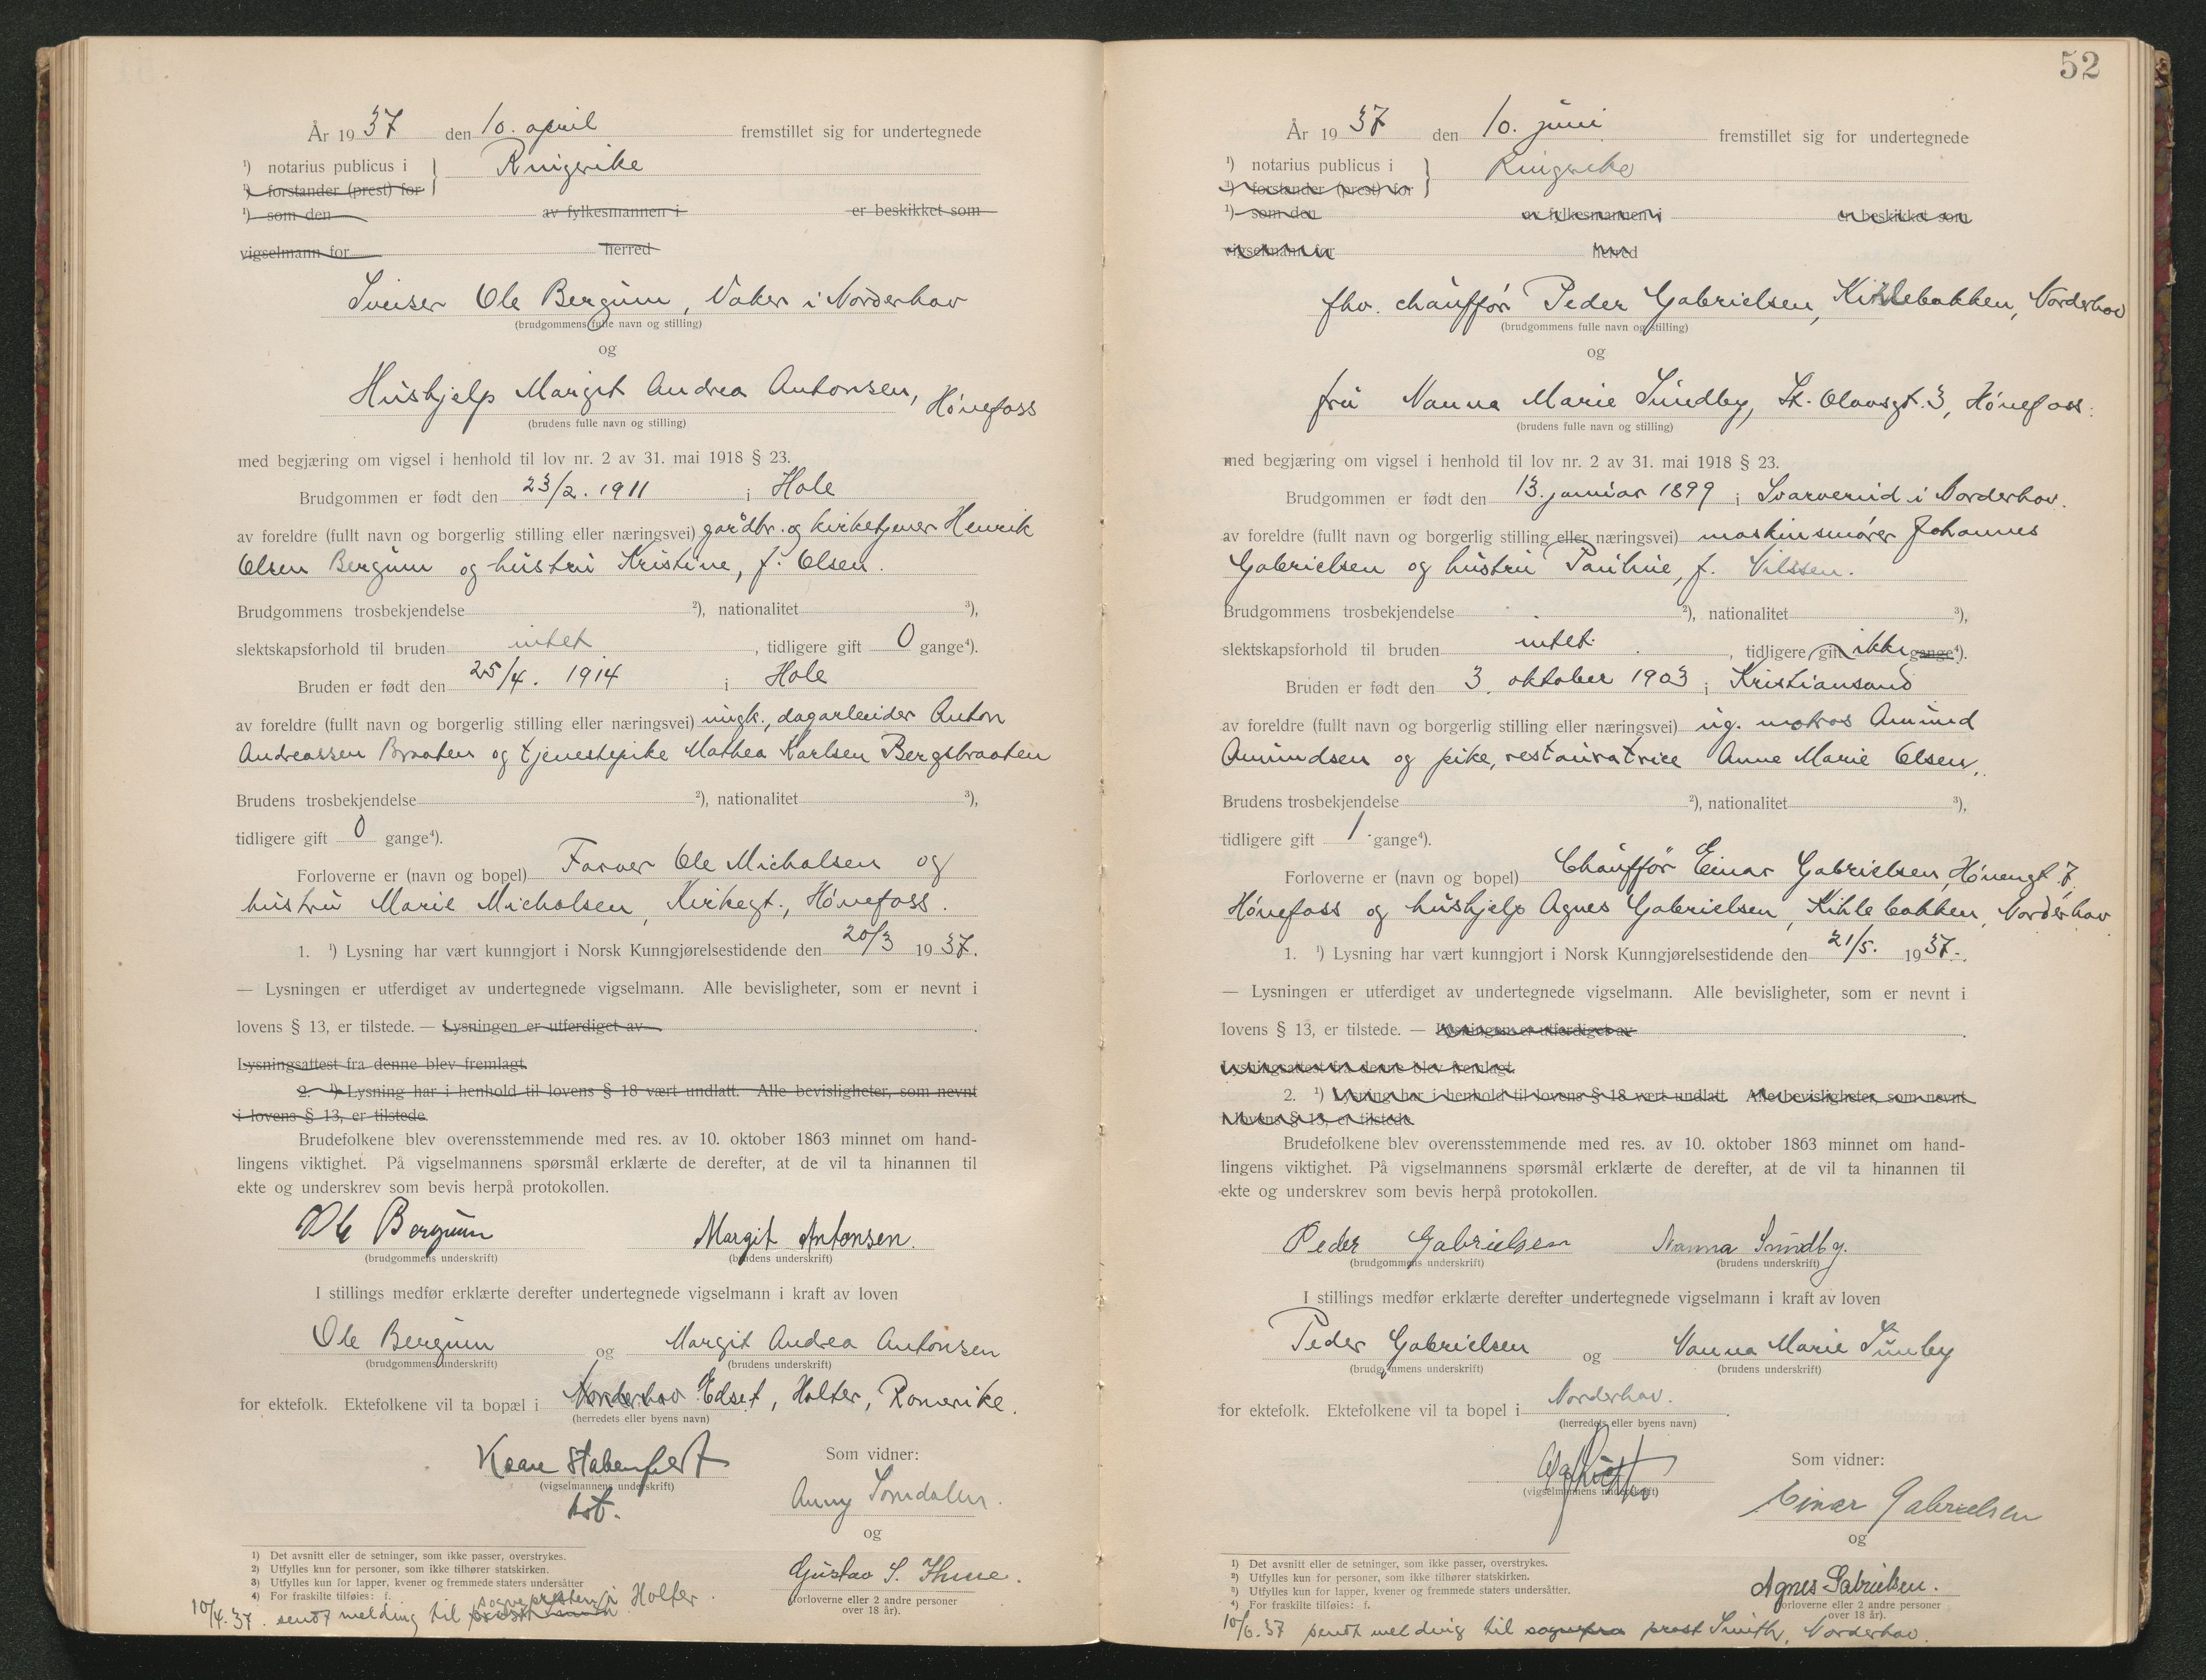 År 1937 den 10. april fremstillet sig for undertegnede
¹) notarius publicus i } Ringerike
¹) forstander (prest) for
¹) som den av fylkesmannen i er beskikket som
vigselmann for herred
Sveiser Ole Bergum, Vaker i Norderhov
(brudgommens fulle navn og stilling)
og
Hushjelp Margit Andrea Antonsen, Hønefoss
(brudens fulle navn og stilling)
med begjæring om vigsel i henhold til lov nr. 2 av 31. mai 1918 § 23.
Brudgommen er født den 23/2. 1911 i Hole
av foreldre (fullt navn og borgerlig stilling eller næringsvei) gårdbr. og kirketjener Henrik
Olsen Bergum og hustru Kristine, f. Olsen.
Brudgommens trosbekjendelse ²), nationalitet ³),
slektskapsforhold til bruden intet, tidligere gift 0 gange⁴).
Bruden er født den 25/4. 1914 i Hole
av foreldre (fullt navn og borgerlig stilling eller næringsvei) ungk., dagarbeider Anton
Andreassen Braaten og tjenestepike Mathea Karlsen Bergsbraaten
Brudens trosbekjendelse ²), nationalitet ³),
tidligere gift 0 gange⁴).
Forloverne er (navn og bopel) Farver Ole Micholsen og
hustru Marie Micholsen, Kirkegt., Hønefoss.
1. ¹) Lysning har vært kunngjort i Norsk Kunngjørelsestidende den 20/3 1937.
— Lysningen er utferdiget av undertegnede vigselmann. Alle bevisligheter, som er nevnt i
lovens § 13, er tilstede. — Lysningen er utferdiget av
Lysningsattest fra denne blev fremlagt.
2. ¹) Lysning har i henhold til lovens § 18 vært undlatt. Alle bevisligheter, som nevnt
i lovens § 13, er tilstede
Brudefolkene blev overensstemmende med res. av 10. oktober 1863 minnet om hand-
lingens viktighet. På vigselmannens spørsmål erklærte de derefter, at de vil ta hinannen til
ekte og underskrev som bevis herpå protokollen.
Ole Bergum Margit Antonsen.
(brudgommens underskrift) (brudens underskrift)
I stillings medfør erklærte derefter undertegnede vigselmann i kraft av loven
Ole Bergum og Margit Andrea Antonsen
(brudgommens underskrift) (brudens underskrift)
for ektefolk. Ektefolkene vil ta bopæl i Norderhov Edset, Holter, Romerike.
(herredets eller byens navn)
Som vidner:
(vigselmannens underskrift)
Anny
og
Gustav S. Thune.
(forloverne eller 2 andre personer
over 18 år).
1) Det avsnitt eller de setninger, som ikke passer, overstrykes.
2) Utfylles kun for personer, som ikke tilhører statskirken.
3) Utfylles kun for lapper, kvener og fremmede staters undersåtter
4) For fraskilte tilføies: f.
10/4.37. sendt melding til sognepresten i Holter.
52
År 1937 den 10. juni fremstillet sig for undertegnede
¹) notarius publicus i } Ringerike
¹) forstander (prest) for
¹) som den av fylkesmannen i er beskikket som
vigselmann for herred
fhv. chauffør Peder Gabrielsen, Kihlebakken, Norderhov
(brudgommens fulle navn og stilling)
og
fru Nanna Marie Sundby, St. Olavsgt. 3, Hønefoss.
(brudens fulle navn og stilling)
med begjæring om vigsel i henhold til lov nr. 2 av 31. mai 1918 § 23.
Brudgommen er født den 13. januar 1899 i Svarverud i Norderhov.
av foreldre (fullt navn og borgerlig stilling eller næringsvei) maskinsmører Johannes
Gabrielsen og hustru Pauline, f. Nilssen.
Brudgommens trosbekjendelse ²), nationalitet ³),
slektskapsforhold til bruden intet., tidligere gift ikke gange⁴).
Bruden er født den 3. oktober 1903 i Kristiansand
av foreldre (fullt navn og borgerlig stilling eller næringsvei) ug. matros Amund
Amundsen og pike, restauratrice Anne Marie Olsen.
Brudens trosbekjendelse ²), nationalitet ³),
tidligere gift 1 gange⁴).
Forloverne er (navn og bopel) Chauffør Einar Gabrielsen, Hønengt. 7
Hønefoss og hushjelp Agnes Gabrielsen, Kihlebakken, Norderhov
1. ¹) Lysning har vært kunngjort i Norsk Kunngjørelsestidende den 21/5. 1937.
— Lysningen er utferdiget av undertegnede vigselmann. Alle bevisligheter, som er nevnt i
lovens § 13, er tilstede. — Lysningen er utferdiget av
Lysningsattest fra denne blev fremlagt.
2. ¹) Lysning har i henhold til lovens § 18 vært undlatt. Alle bevisligheter, som nevnt
i lovens § 13, er tilstede
Brudefolkene blev overensstemmende med res. av 10. oktober 1863 minnet om hand-
lingens viktighet. På vigselmannens spørsmål erklærte de derefter, at de vil ta hinannen til
ekte og underskrev som bevis herpå protokollen.
Peder Gabrielsen Nanna Sundby.
(brudgommens underskrift) (brudens underskrift)
I stillings medfør erklærte derefter undertegnede vigselmann i kraft av loven
Peder Gabrielsen og Nanna Marie Sunby
(brudgommens underskrift) (brudens underskrift)
for ektefolk. Ektefolkene vil ta bopel i Norderhov.
(herredets eller byens navn)
Som vidner:
(vigselmannens underskrift)
Einar Gabrielsen
og
Agnes Gabrielsen.
(forloverne eller 2 andre personer
over 18 år).
1) Det avsnitt eller de setninger, som ikke passer, overstrykes.
2) Utfylles kun for personer, som ikke tilhører statskirken.
3) Utfylles kun for lapper, kvener og fremmede staters undersåtter.
4) For fraskilte tilføies: f.
10/6.37 sendt melding til prest Smith, Norderhov.